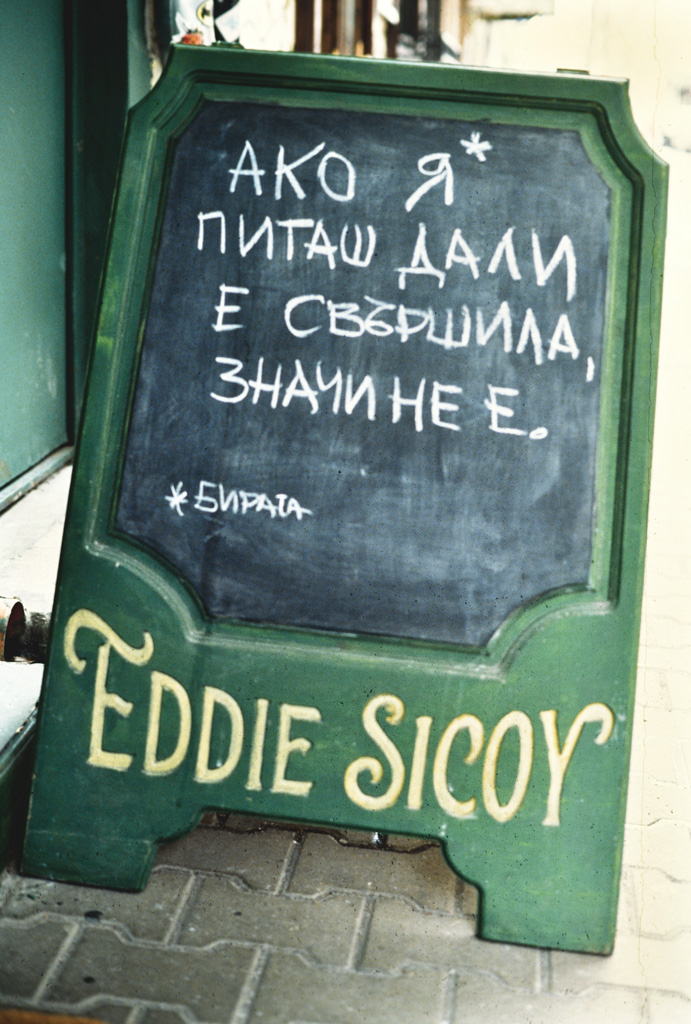 АКО Я*
ПИТАШ ДАЛИ
Е СВЪРШИЛА,
ЗНАЧИ НЕ Е.
*БИРАТА
EDDIE SICOY